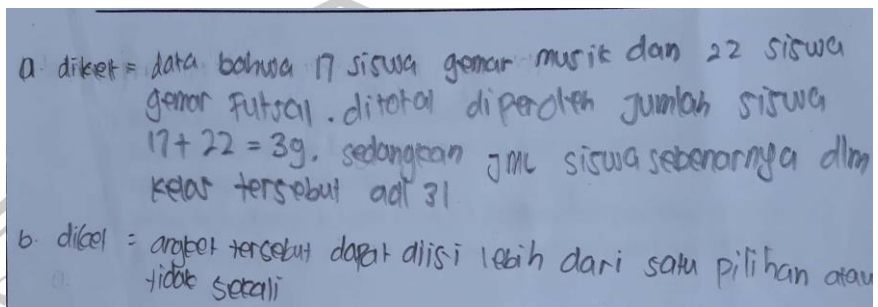 a. diket = data bahwa 17 siswa gemar musik dan 22 siswa
gemar Futsal. ditotal diperoleh Jumlah siswa
17 + 22 = 39. sedangkan JML siswa sebenarnya dlm
kelas tersebut adl 31
b. diket = angket tersebut dapat diisi lebih dari satu pilihan atau
tidak sekali